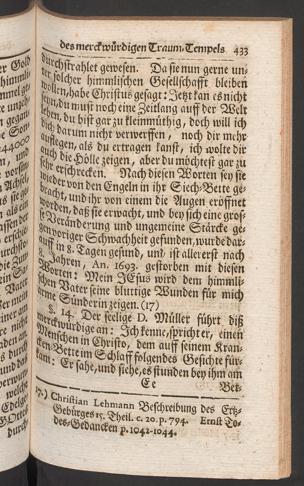 des merckwürdigen Traum-Tempels 433
durchstrahlet gewesen. Da sie nun gerne un-
ter solcher himmlischen Gesellschafft bleiben
wollen, habe Christus gesagt: Jetzt kan es nicht
seyn, du must noch eine Zeitlang auff der Welt
leben, du bist gar zu kleinmüthig, doch will ich
dich darum nicht verwerffen, noch dir mehr
aufflegen, als du ertragen kanst, ich wolte dir
auch die Hölle zeigen, aber du möchtest gar zu
sehr erschrecken. Nach diesen Worten sey sie
wieder von den Engeln in ihr Siech-Bette ge-
bracht, und ihr von einem die Augen eröffnet
worden, daß sie erwacht, und bey sich eine gros-
se Veränderung und ungemeine Stärcke ge-
gen voriger Schwachheit gefunden, wurde dar-
auff in 8. Tagen gesund, und ist allererst nach
Jahren, An. 1693. gestorben mit diesen
Worten: Mein JEsus wird dem himmli-
schen Vater seine blutige Wunden für mich
arme Sünderin zeigen. (17)
§. 14. Der seelige D. Müller führt diß
merckwürdige an: Ich kenne, spricht er, einen
Menschen in Christo, dem auff seinem Kran-
cken-Bette im Schlaff folgendes Gesichte für-
kam: Er sahe, und siehe, es stunden bey ihm am
E e Bet-
17.) Christian Lehmann Beschreibung des Ertz-
Gebürges 15. Theil. c. 20. p. 794. Ernst To-
des-Gedancken p. 1042-1044.